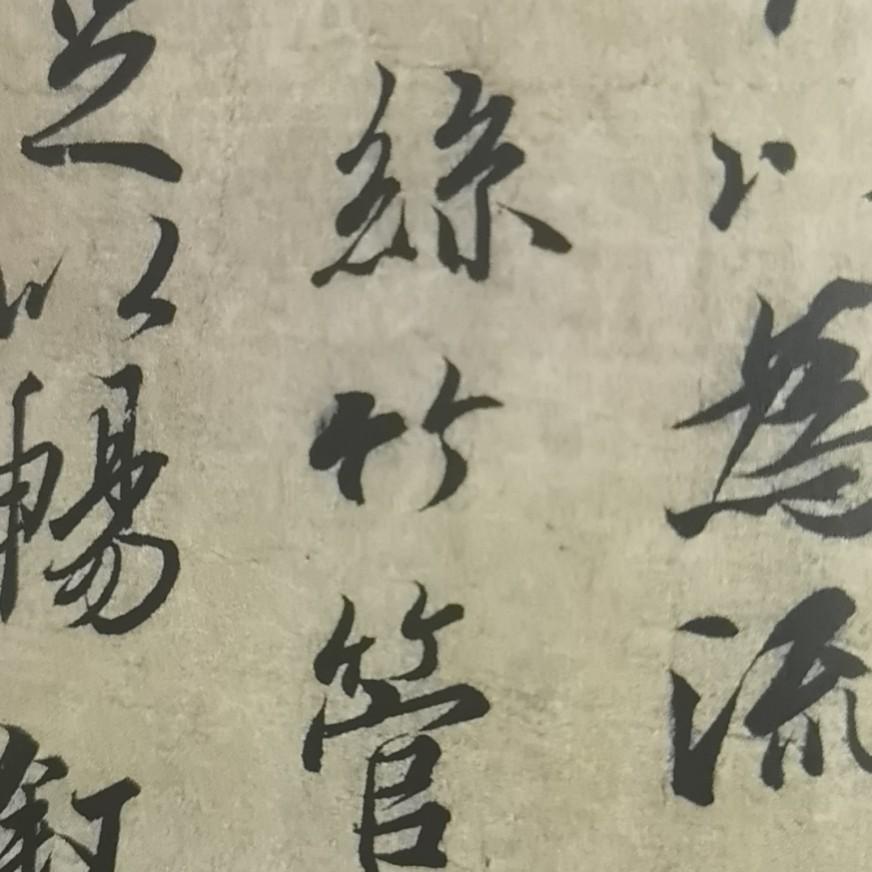 以為流
絲竹管
足以暢